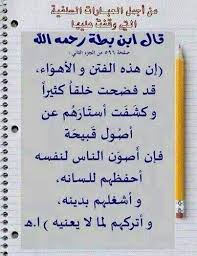 من أجمل العبارات السلفية
التي وقفت عليها
قال ابن بطة رحمه الله
صفحة ٥٩٦ من الجزء الثاني:
(إن هذه الفتن و الأهواء،
قد فضحت خلقاً كثيراً
و كشفت أستارهم عن
أصُول قَبيحة
فإن أصون الناس لنفسه
أحفظهم للسانه،
و أشغلهم بدينه،
و أتركهم لما لا يعنيه ) ا.هـ